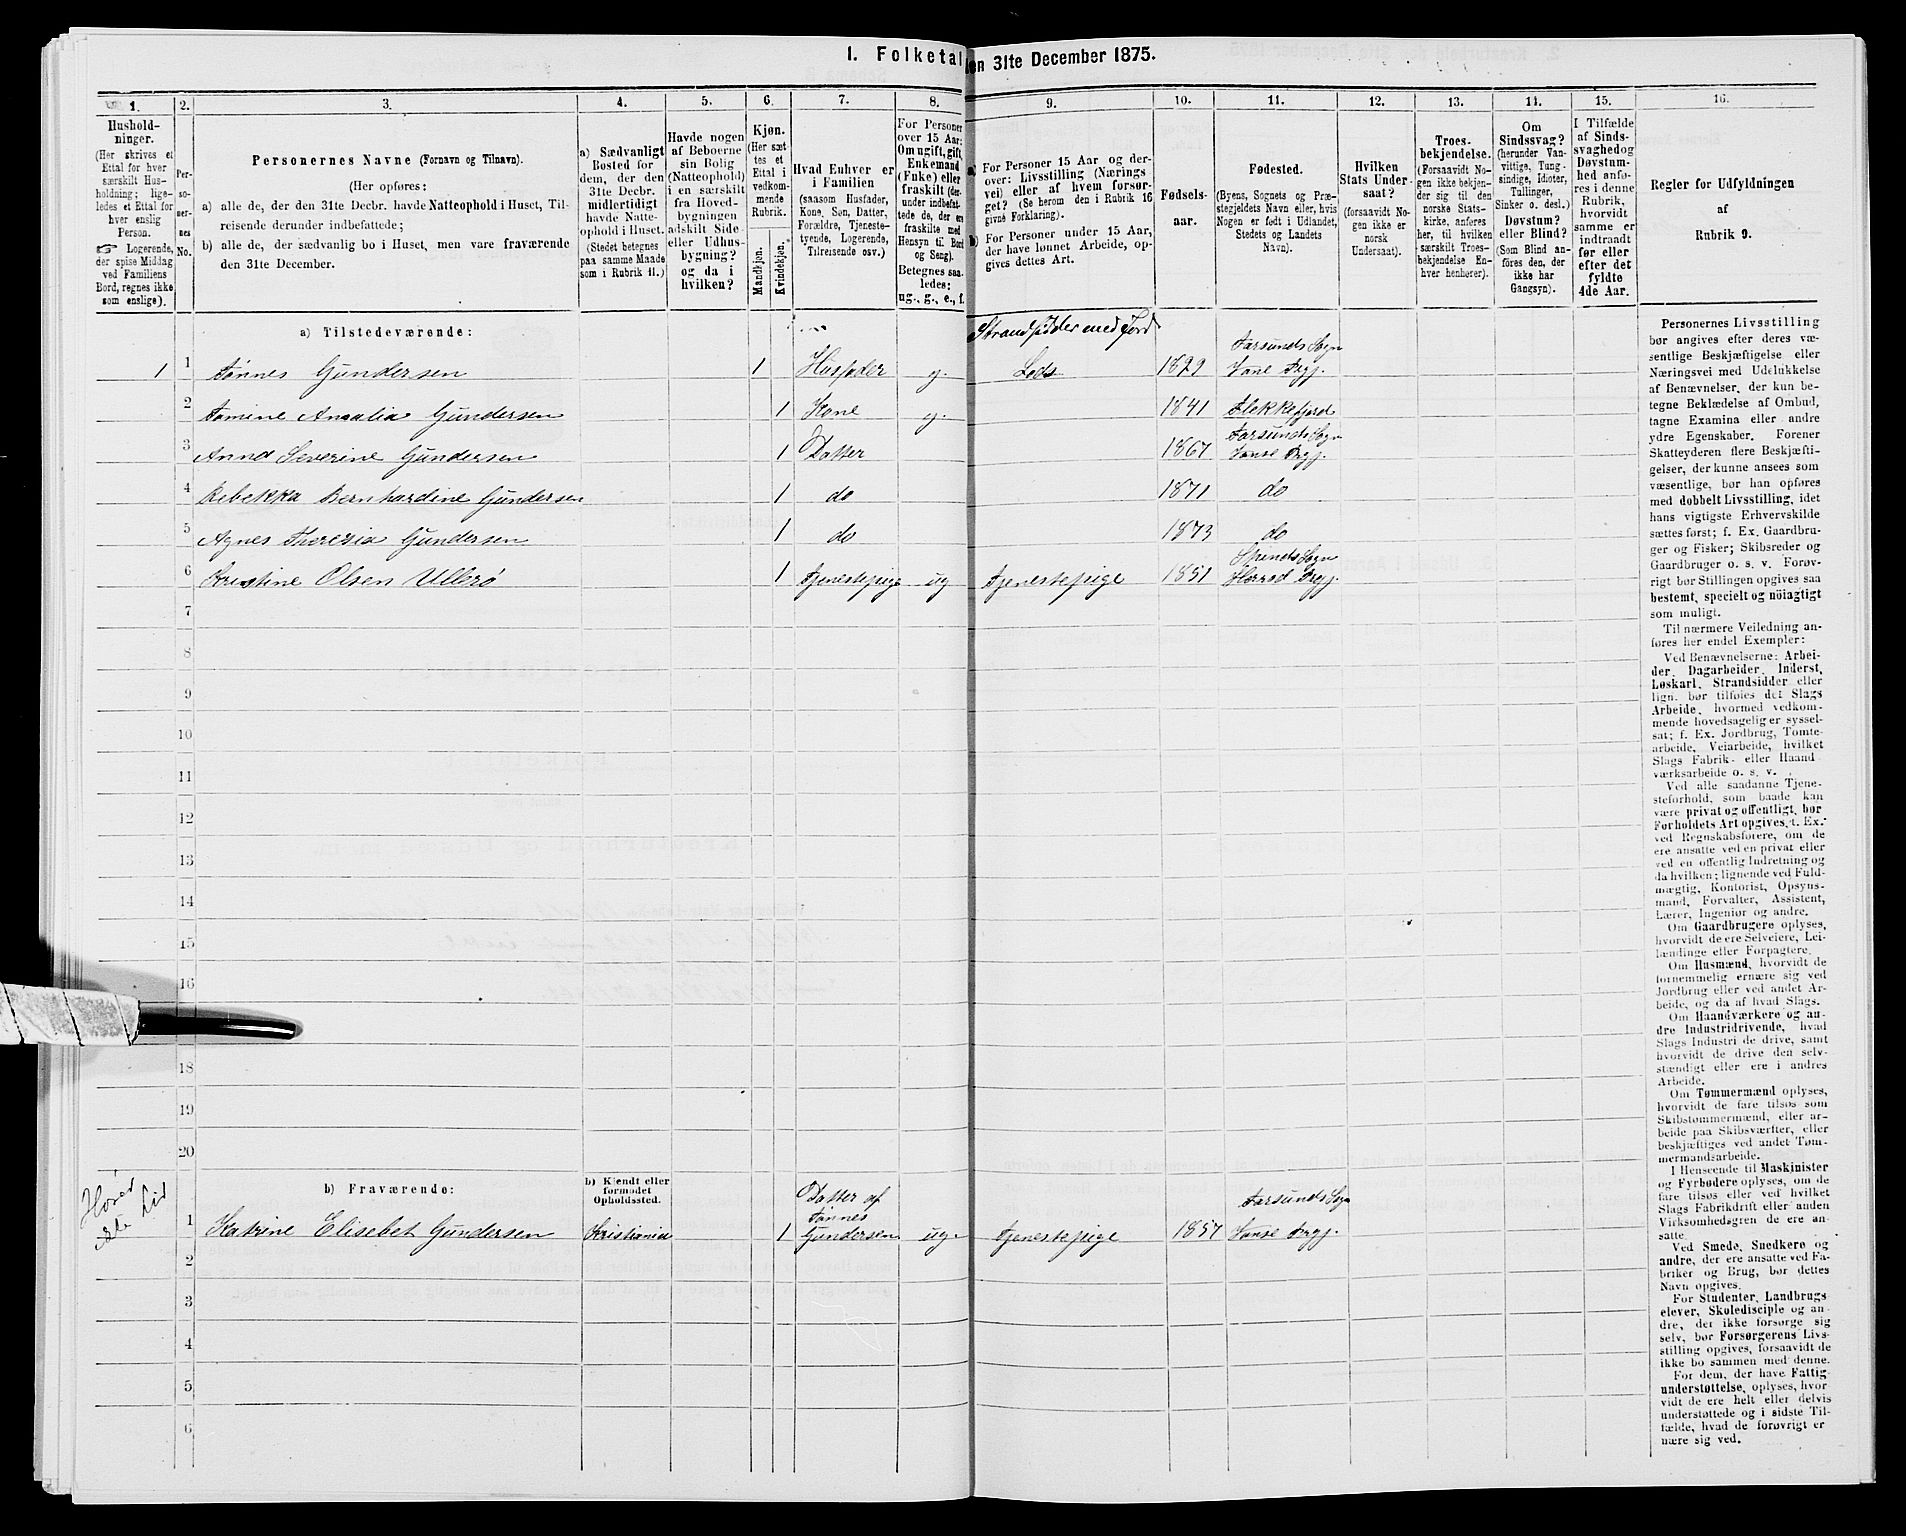 1. Folketal den 31te December 1875.
1.
2.
3.
4.
5.
6.
7.
8.
9.
10.
11.
12.
13.
14.
15.
16.
Hushold-
ninger.
(Her skrives et
Ettal for hver
særskilt Hus-
holdning; lige-
ledes et Ettal for
hver enslig
Person.
☞ Logerende,
der spise Middag
ved Familiens
Bord, regnes ikke
som enslige).
Per-
so-
ner-
nes
No.
Personernes Navne (Fornavn og Tilnavn).
(Her opføres:
a) alle de, der den 31te Decbr. havde Natteophold i Huset, Til-
reisende derunder indbefattede;
b) alle de, der sædvanlig bo i Huset, men vare fraværende
den 31te December.
a) Sædvanligt
Bosted for
dem, der den
31te Decbr.
midlertidigt
havde Natte-
ophold i Huset.
(Stedet betegnes
paa samme Maade
som i Rubrik 11.)
Havde nogen
af Beboerne
sin Bolig
(Natteophold)
i en særskilt
fra Hoved-
bygningen
adskilt Side-
eller Udhus-
bygning?
og da i
hvilken?
Kjøn.
(Her sæt-
tes et
Ettal i
vedkom-
mende
Rubrik.
Mandkjøn.
Kvindekjøn.
Hvad Enhver er
i Familien
(saasom Husfader,
Kone, Søn, Datter,
Forældre, Tjeneste-
tyende, Logerende,
Tilreisende osv.)
For Personer
over 15 Aar:
Om ugift, gift,
Enkemand
(Enke) eller
fraskilt (der-
under indbefat-
tede de, der ere
fraskilte med
Hensyn til Bord
og Seng).
Betegnes saa-
ledes:
ug., g., e., f.
a) For Personer 15 Aar og der-
over: Livsstilling (Nærings
vei) eller af hvem forsør-
get? (Se herom den i Rubrik 16
givne Forklaring).
b) For Personer under 15 Aar,
der have lønnet Arbeide, op-
gives dettes Art.
Fødsels-
aar.
Fødested.
(Byens, Sognets og Præ-
stegjeldets Navn eller, hvis
Nogen er født i Udlandet,
Stedets og Landets
Navn).
Hvilken
Stats Under-
saat?
(forsaavidt No-
gen ikke er
norsk
Undersaat).
Troes-
bekjendelse.
(Forsaavidt No-
gen ikke bekjen-
der sig til den
norske Stats-
kirke, anføres
her, til hvilken
særskilt Troes-
bekjendelse En-
hver henhører).
Om
Sindssvag?
(herunder Van-
vittige, Tung-
sindige, Idioter,
Tullinger,
Sinker o. desl.)
Døvstum?
eller Blind?
(Som Blind an-
føres den, der
ikke har
Gangsyn).
I Tilfælde
af Sinds-
svaghed og
Døvstum-
hed anfø-
res i denne
Rubrik,
hvorvidt
samme er
indtraadt
før eller
efter det
fyldte
4de Aar.
Regler for Udfyldningen
af
Rubrik 9.
a) Tilstedeværende:
Strandsidder med Jord
Farsunds Sogn
1 1 Tønnes Gundersen 1 Husfader g. Lods 1829 Vanse Prgj.
2 Tomine Amalia Gundersen 1 Kone g. 1841 Flekkefjord
Farsunds Sogn
3 Anna Severine Gundersen 1 Datter 1867 Vanse Prgj.
4 Rebekka Bernhardine Gundersen 1 do 1871 do
5 Agnes Theresia Gundersen 1 do 1873 do
Spinds Sogn
6 Kristine Olsen Ullerø 1 Tjenestepige ug Tjenestepige 1851 Herred Prgj.
7
8
9
10
11
12
13
14
15
16
18
19
20
b) Fraværende:
b) Kjendt eller
formodet
Opholdssted.
Datter af
Tønnes
Farsunds Sogn
1 Katrine Elisebet Gundersen Kristiania 1 Gundersen ug. Tjenestepige 1857 Vanse Prgj.
2
3
4
5
6
Personernes Livsstilling
bør angives efter deres væ-
sentlige Beskjæftigelse eller
Næringsvei med Udelukkelse
af Benævnelser, der kun be-
tegne Beklædelse af Ombud,
tagne Examina eller andre
ydre Egenskaber. Forener
Skatteyderen flere Beskjæfti-
gelser, der kunne ansees som
væsentlige, bør han opgives
med dobbelt Livsstilling, idet
hans vigtigste Erhvervskilde
sættes først; f. Ex. Gaardbru-
ger og Fisker; Skibsreder og
Gaardbruger o. s. v. Forøv-
rigt bør Stillingen opgives saa
bestemt, specielt og nöiagtigt
som muligt.
Til nærmere Veiledning an-
føres her endel Exempler:
Ved Benævnelserne: Arbei-
der, Dagarbeider, Inderst,
Løskarl, Strandsidder eller
lign. bør tilføies det Slags
Arbeide, hvormed vedkom-
mende hovedsagelig er syssel-
sat; f. Ex. Jordbrug, Tomte-
arbeide, Veiarbeide, hvilket
Slags Fabrik- eller Haand
værksarbeide o. s. v.
Ved alle saadanne Tjene-
steforhold, som baade kan
være privat og offentligt, bør
Forholdets Art opgives, t. Ex.
ved Regnskabsførere, om de
ere ansatte ved en privat eller
ved en offentlig Indretning og
da hvilken; lignende ved Fuld-
mægtig, Kontorist, Opsyns-
mand, Forvalter, Assistent,
Lærer, Ingeniør og andre.
Om Gaardbrugere oplyses,
hvorvidt de ere Selveiere, Lei-
lændinge eller Forpagtere.
Om Husmænd, hvorvidt de
fornemmelig ernære sig ved
Jordbrug eller ved andet Ar-
beide, og da af hvad Slags.
Om Haandværkere og an-
dre Industridrivende, hvad
Slags Industri de drive, samt
hvorvidt de drive den selv-
stændigt eller ere i andres
Arbeide.
Om Tømmermænd oplyses,
hvorvidt de fare tilsøs som
Skibstømmermænd, eller ar-
beide paa Skibsværfter, eller
beskjæftiges ved andet Tøm-
mermandsarbeide.
I Henseende til Maskinister
og Fyrbødere oplyses, om de
fare tilsøs eller ved hvilket
Slags Fabrikdrift eller anden
Virksomhedsgren de ere an-
satte.
Ved Smede, Snedkere og
andre, der ere ansatte ved Fa-
briker og Brug, bør dettes
Navn opgives.
For Studenter, Landbrugs-
elever, Skoledisciple og an-
dre, der ikke forsørge sig
selv, bør Forsørgerens Livs-
stilling opgives, forsaavidt de
ikke bo sammen med denne.
For dem, der have Fattig-
understøttelse, oplyses, hvor-
vidt de ere helt eller delvis
understøttede og i sidste Til-
fælde, hvad de forøvrigt er-
nære sig ved.